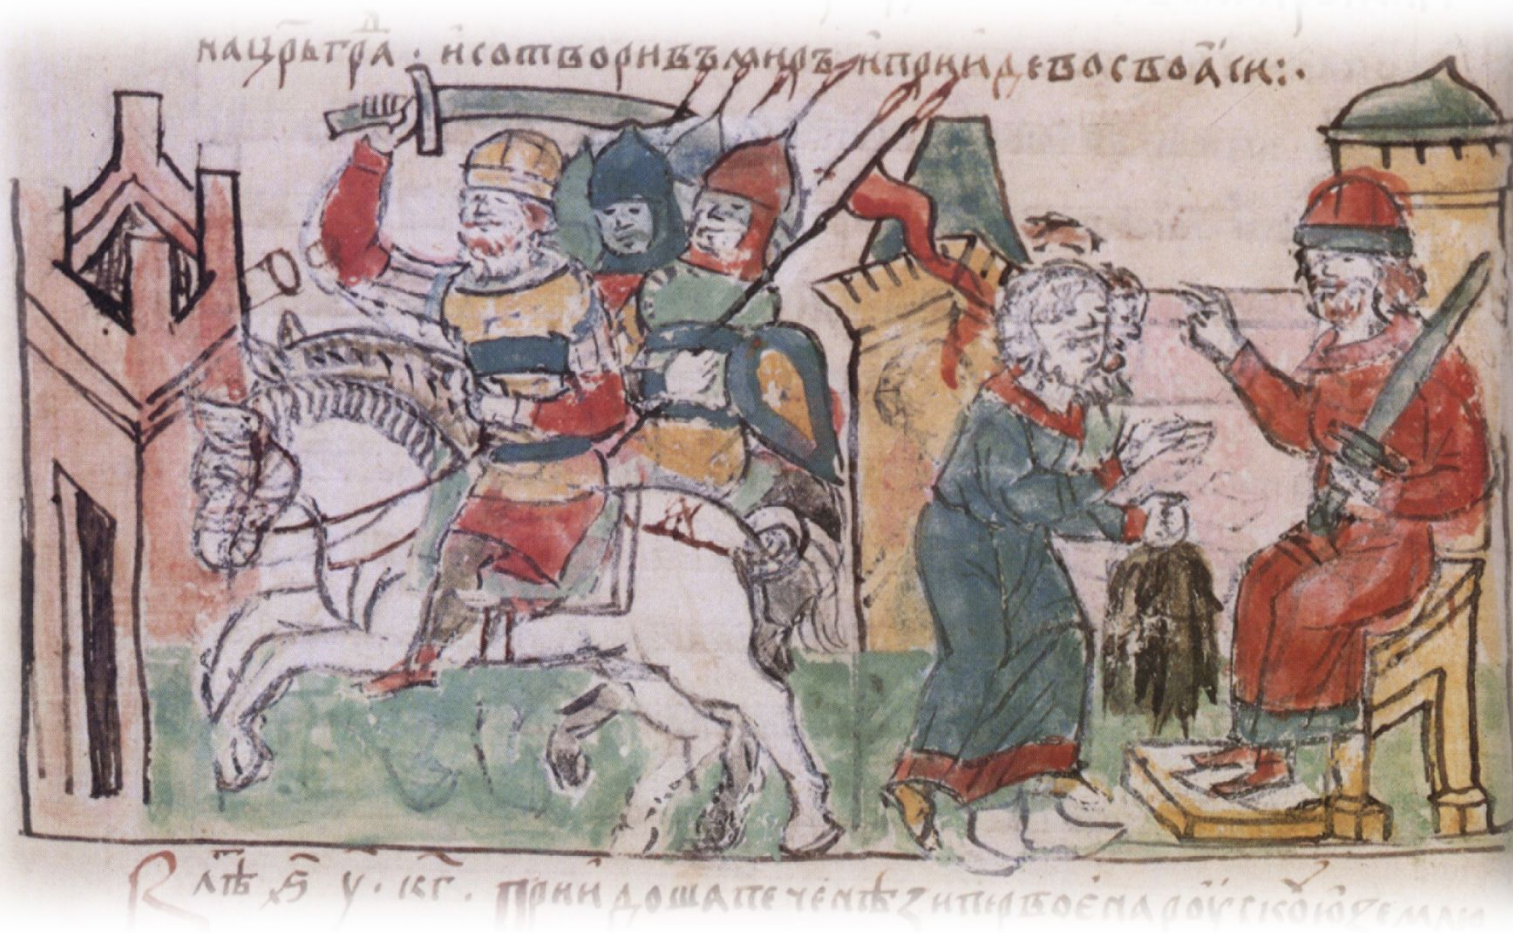 нацр҃ьгрⷣа . исотворивъмиръ ипрıидевосвоӓси:·
В лѣⷮ ѕ҃ у҃ . кг҃ . приидошапеченѣзипервоєнароускоую землю